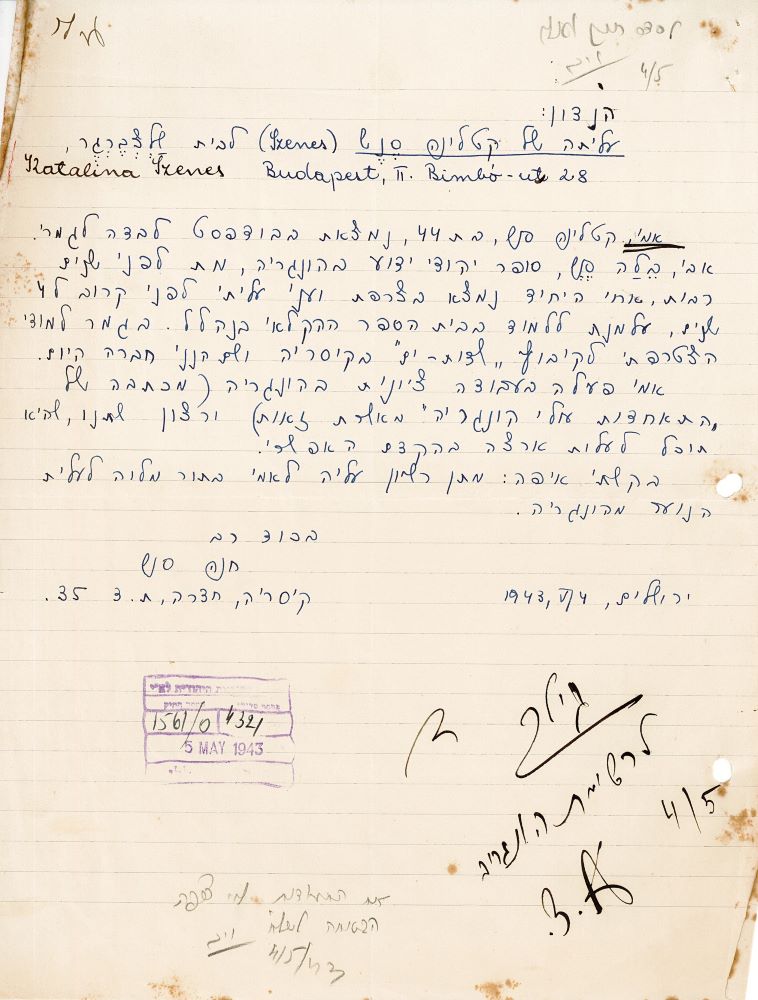 4/5
הנדון:
עליתה של קטלינה סֶנֶש (Szenes) לבית שַלְצְבֶּרְגֶר,
Katalina Szenes Budapest, II. Bimbó-ut 28
אמי, קטלינה סנש, בת 44, נמצאת בבודפסט לבדה לגמרי.
אבי, בֵּלַה סֶנֶש, סופר יהודי ידוע בהונגריה, מת לפני שנים
רבות, אחי היחיד נמצא בצרפת ואני עליתי לפני קרוב ל4
שנים, על מנת ללמוד בבית הספר החקלאי בנהלל. בגמר למודי
הצטרפתי לקיבוץ "שדות-ים" בקיסריה ושם הנני חברה היום.
אמי פעלה בעבודה ציונית בהונגריה (מכתבה של
"התאחדות עולי הונגריה" מאשרת זאת) ורצון שתנו, שהיא
תוכל לעלות ארצה בהקדם האפשרי.
בקשתי איפה: מתן רשיון עליה לאמי בתור מלוה לעלית
הנוער מהונגריה.
בכוד רב
חנה סנש
ירושלים, 4/V, 1943 קיסריה, חדרה, ת.ד 35.
היהודית לא"י
1561/0 4321
5 MAY 1943
לרשימת הונגריה
4/5
הבטיחה לשלוח
4/5